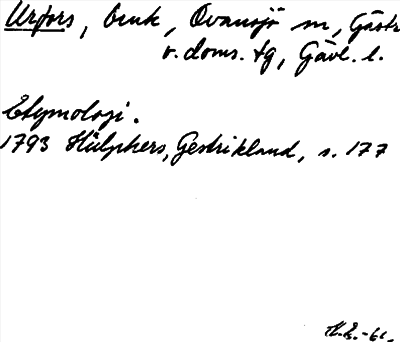 Urfors, bruk, Ovansjö sn, Gästr
v. doms. tg, Gävl. l.
Etymologi.
1793 Hülphers, Gestrikland, s. 177